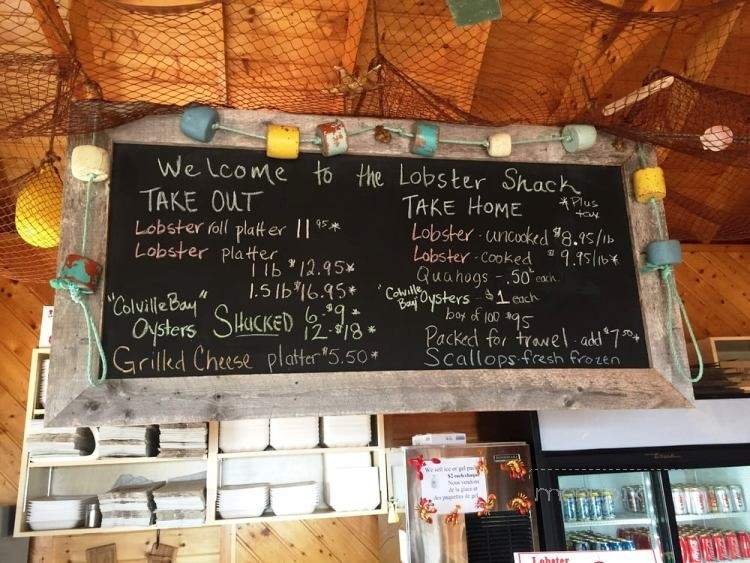 Welcome to the Lobster Shack
TAKE OUT
Lobster roll platter 11.95*
Lobster platter
1 lb $12.95*
1.5 lb $16.95*
"Colville Bay"
Oysters SHUCKED 6-$9*
12-$18*
Grilled Cheese platter $5.50*
TAKE HOME *Plus tax
Lobster - uncooked $8.95/lb
Lobster - cooked $9.95/lb*
Quahogs - .50¢ each
"Colville Bay" Oysters - $1 each
box of 100 $95
Packed for travel - add $7.50*
Scallops - fresh frozen
We sell ice or gel packs
$2 each/ch
Nous vendons
de la glace et
des paquettes de gel
Lobster